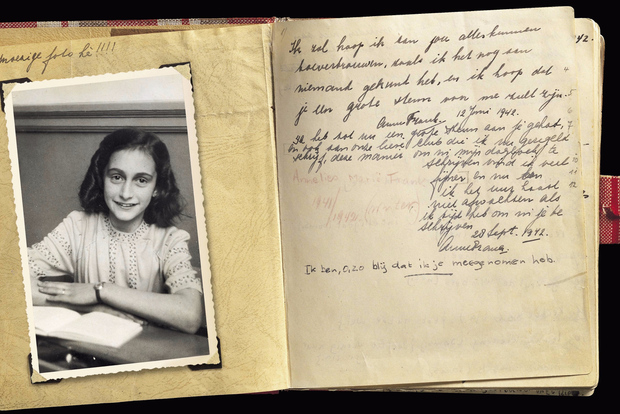 foto hè!!!!
42.
Ik zal hoop ik aan jou alles kunnen
toevertrouwen, zoals ik het nog aan
niemand gekund heb, en ik hoop dat
je een grote steun voor me zult zijn.
Anne Frank. 12 Juni 1942.
Ik heb tot nu een grote steun aan je gehad,
en ook aan onze lieve club die ik nu geregeld
schrijf, deze manier om in mijn dagboek te
schrijven vind ik veel
fijner en nu kan
ik het uur haast
niet afwachten als
ik tijd heb om in je te
schrijven
28 Sept. 1942.
Anne Frank.
Ik ben, o, zo blij dat ik je meegenomen heb.